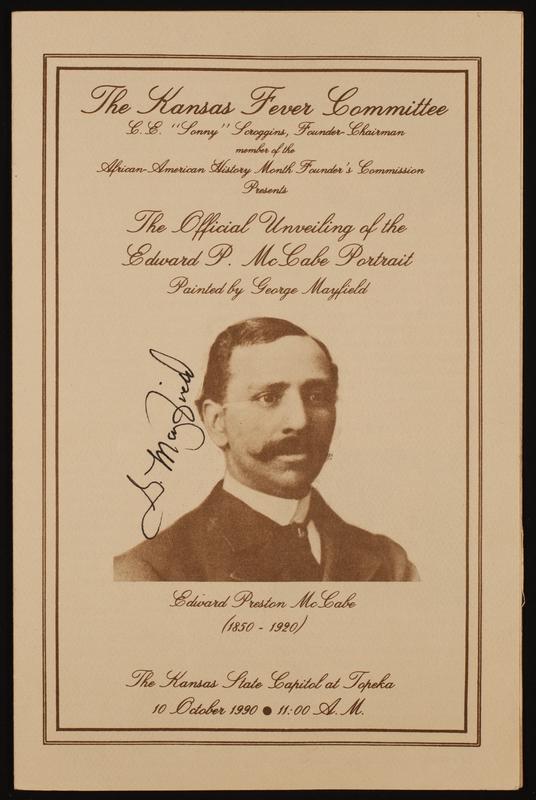 The Kansas Fever Committee
C.E. "Sonny" Scroggins, Founder-Chairman
member of the
African-American History Month Founder's Commission
Presents
The Official Unveiling of the
Edward P. McCabe Portrait
Painted by George Mayfield
G. Mayfield
Edward Preston McCabe
(1850 - 1920)
The Kansas State Capitol at Topeka
10 October 1990 ● 11:00 A.M.